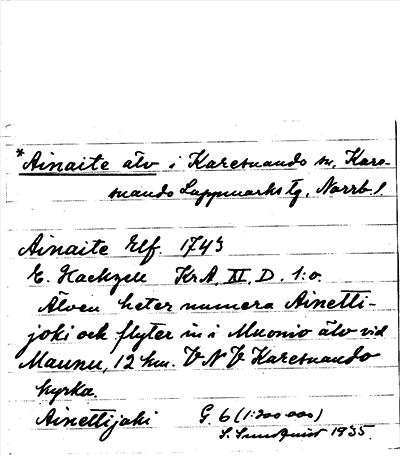 *Ainaite älv i Karesuando sn, Kare-
suando Lappmarks tg, Norrb. l.
Ainaite Elf. 1743
E. Hackzell KrA, XI, D. 1:o.
Älven heter numera Ainetti-
joki och flyter in i Muonio älv vid
Maunu, 12 km. VNV Karesuando
kyrka.
Ainettijoki G. 6 (1:200 000)
S. Sundqvist 1935.